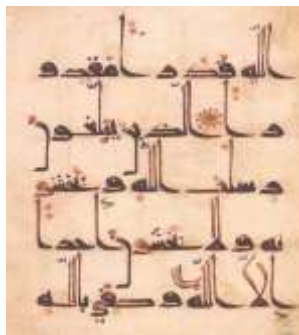 الله قدرا مقدو
را الذين يبلغون
رسلت الله و يخشو
نه و لا يخشون احدا
الا الله و كفى بالله